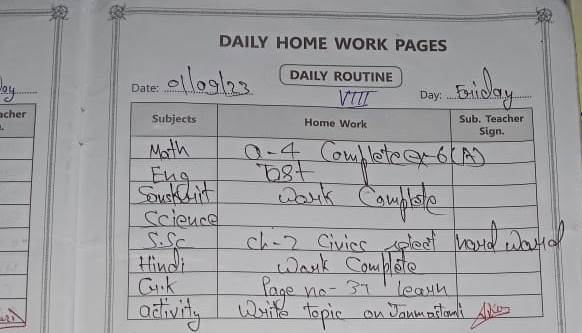 DAILY HOME WORK PAGES
DAILY ROUTINE
Date: 01/09/23 VIII Day: Friday
Subjects Home Work Sub. Teacher Sign.
Math Q-4 Complete Ex-6(A)
Eng Test
Sanskrit Work Complete
Science
S.Sc ch-2 Civics select hard word
Hindi Work Complete
G.K Page no- 37 learn
activity Write topic on Janmastami